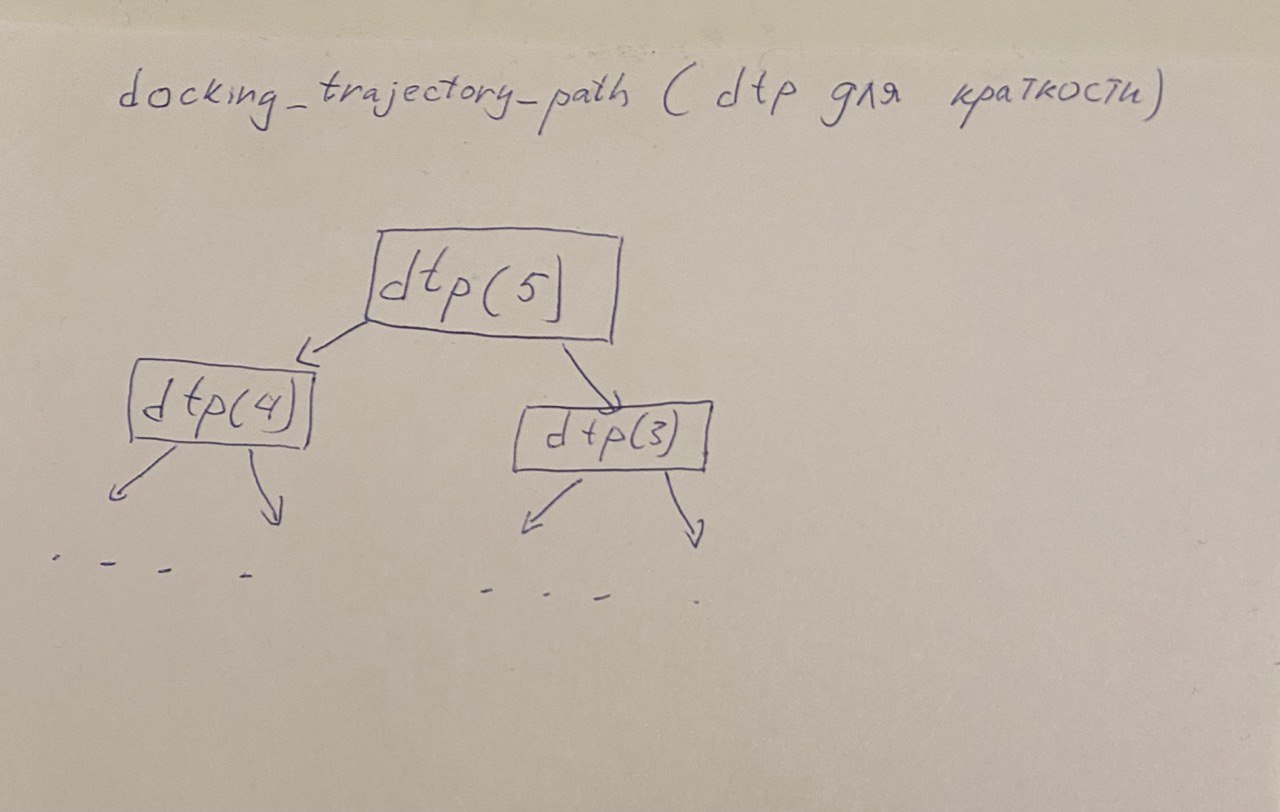 docking_trajectory_path (dtp для краткости)
dtp(5)
dtp(4)
dtp(3)
. - - -
- . - .